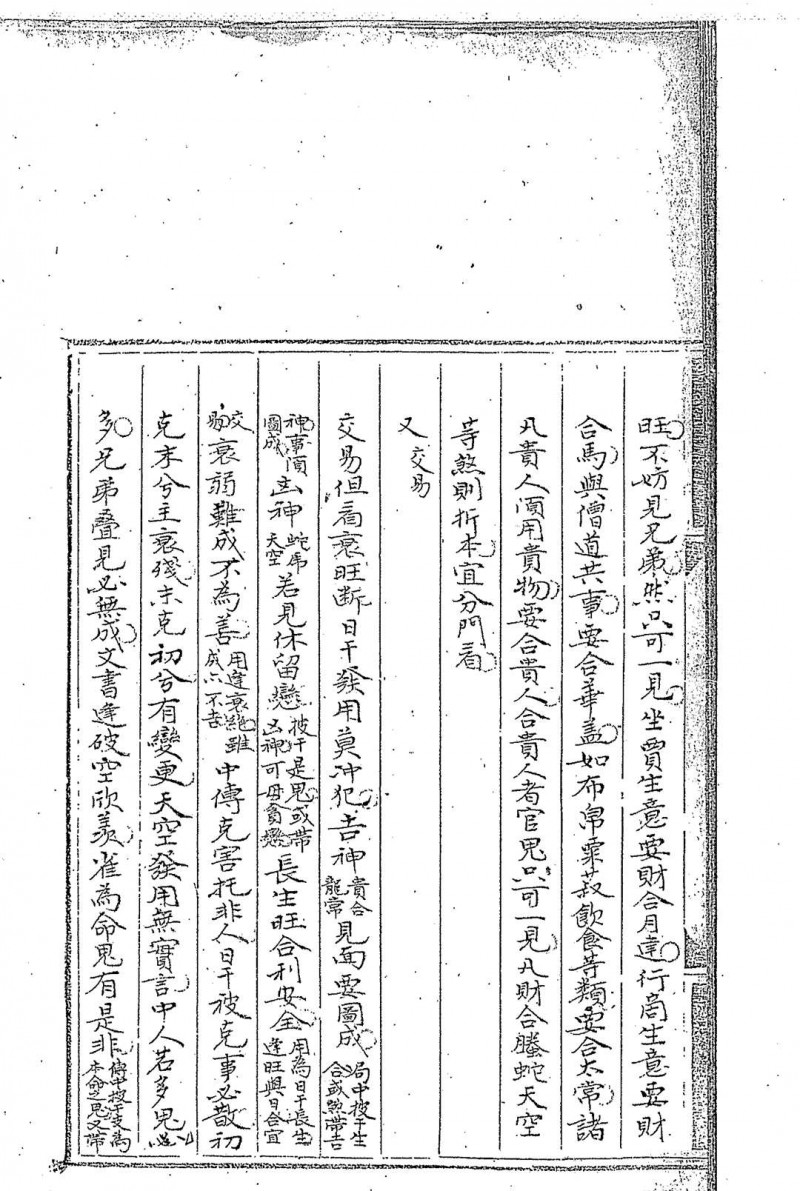 旺不妨見兄弟然只可一見坐賈生意要財合月建行商生意要財
合馬與僧道共事要合華盖如布帛粟菽飲食等類要合太常諸
凡貴人須用貴物要合貴人合貴人者官鬼只可一見凡財合螣蛇天空
等煞則折本宜分門看
又交易
交易但看衰旺断日干發用莫冲犯吉神貴合龍常見面要圖成局中投干生合或煞帶吉
神事須圖成凶神蛇虎天空若見休留戀投干是鬼或帶凶神可毋貪戀長生旺合利安全用為日干長生逢旺與日合宜
交易衰弱難成不為善用逢衰絕雖成亦不吉中傳克害托非人日干被克事必散初
克末兮主衰殘末克初兮有變更天空發用無實言中人若多鬼必
多兄弟疊見必無成文書逢破空欣羨雀為命鬼有是非傳中投干支為本命之鬼又帶